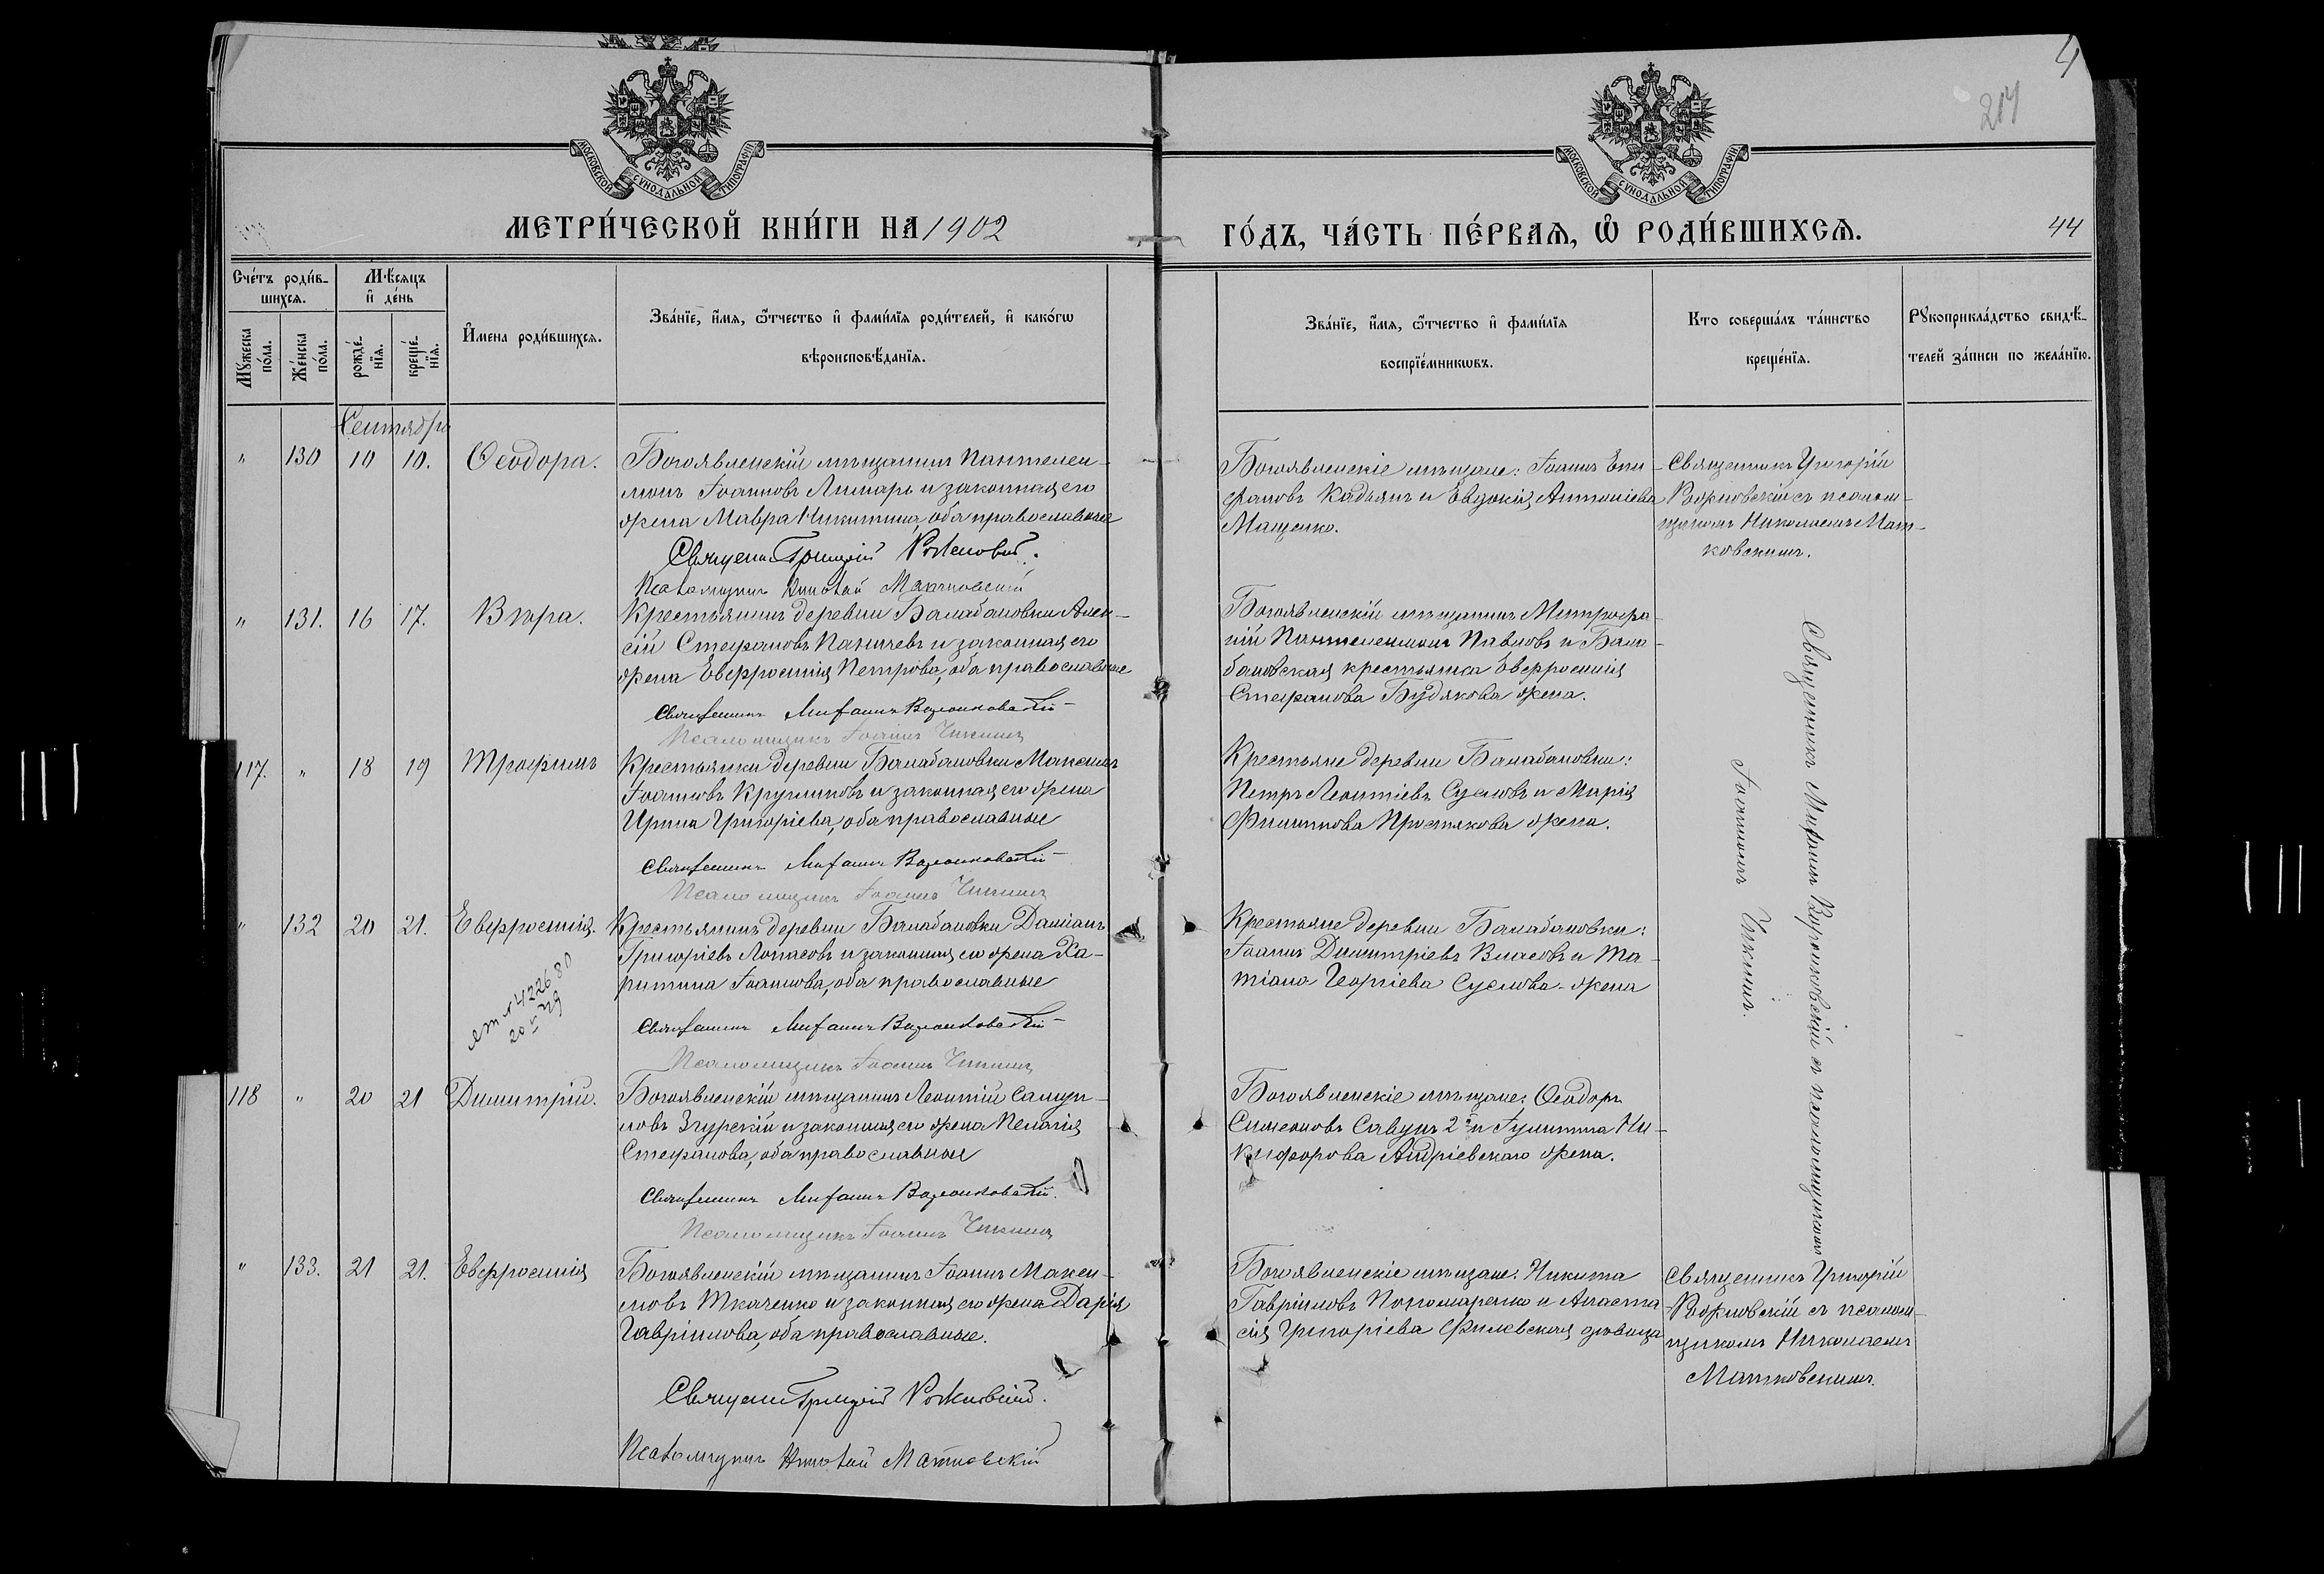 4
217
МОСКОВСКОЙ СУНОДАЛЬНОЙ ТИПОГРАФІИ
МОСКОВСКОЙ СУНОДАЛЬНОЙ ТИПОГРАФІИ
МЕТРИ́ЧЕСКОЙ КНИ́ГИ НА 1902
ГО́ДЪ, ЧА́СТЬ ПЕ́РВАѦ, Ѡ҆ РОДИ́ВШИХСѦ.
44
Сче́тъ роди́в-
шихсѧ.
Мꙋ́жеска по́ла.
Же́нска по́ла.
Мѣ́сяцъ
и҆ де́нь
рожде́-
нїѧ.
креще́-
нїѧ.
И҆мена роди́вшихсѧ.
Зва́нїе, и҆́мя, ѻ҆́тчество и҆ фами́лїѧ роди́телей, и҆ како́гѡ
вѣроисповѣ́данїѧ.
Зва́нїе, и҆́мя, ѻ҆́тчество и҆ фами́лїѧ
воспрїе́мникѡвъ.
Кто соверша́лъ та́инство
креще́нїѧ.
Рꙋкоприкла́дство свидѣ́-
телей за́писи по жела́нїю.
Сентябрь
" 130 10 10. Ѳеодора.
Богоявленскій мѣщанинъ Пантелеи-
монъ Іоанновъ Лимарь и законная его
жена Мавра Никитина, оба православные
Священ Григорій Рожновскій.
Псаломщикъ Николай Матковскій
Богоявленскіе мѣщане: Іоаннъ Епи-
фановъ Кадьянъ и Евдокія Антоніева
Мащенко.
Священникъ Григорій
Рожновскій съ псалом-
щикомъ Николаемъ Мат-
ковскимъ.
" 131. 16 17. Вѣра.
Крестьянинъ деревни Балабановки Алек-
сій Стефановъ Паничевъ и законная его
жена Евфросинія Петрова, оба православные
Священникъ
Псаломщикъ Іоаннъ Чикнинъ
Богоявленскій мѣщанинъ Митрофа-
ній Пантелеимоновъ Павловъ и Бала-
бановская крестьянка Евфросинія
Стефанова Будякова жена.
117. " 18 19 Трофимъ
Крестьянинъ деревни Балабановки Максимъ
Іоанновъ Кругликовъ и законная его жена
Ирина Григоріева, оба православные
Священникъ
Псаломщикъ Іоаннъ Чикнинъ
Крестьяне деревни Балабановки:
Петръ Леонтіевъ Сусловъ и Марія
Филиппова Простякова жена.
" 132 20 21. Евфросинія.
Крестьянинъ деревни Балабановки Даміанъ
Григоріевъ Лопасовъ и законная его жена Ха-
ритина Іоаннова, оба православные
Священникъ
Псаломщикъ Іоаннъ Чикнинъ
Крестьяне деревни Балабановки:
Іоаннъ Димитріевъ Власовъ и Та-
тіана Георгіева Суслова жена
118 " 20 21 Димитрій.
Богоявленскій мѣщанинъ Леонтій Самуи-
ловъ Згурскій и законная его жена Пелагія
Стефанова, оба православные
Священникъ
Псаломщикъ Іоаннъ Чикнинъ
Богоявленскіе мѣщане: Ѳеодоръ
Симеоновъ Савунъ 2й и Іулитта Ни-
кифорова Андріевскаго жена.
Священникъ съ псаломщикомъ
Іоанномъ
" 133. 21 21. Евфросинія
Богоявленскій мѣщанинъ Іоаннъ Макси-
мовъ Ткаченко и законная его жена Дарія
Гавріилова, оба православные.
Священ Григорій Рожновскій.
Псаломщикъ Николай Матковскій
Богоявленскіе мѣщане: Никита
Гавріиловъ Пономаренко и Анаста-
сія Григоріева Филевская дѣвица
Священникъ Григорій
Рожновскій съ псалом-
щикомъ Николаемъ
Матковскимъ.